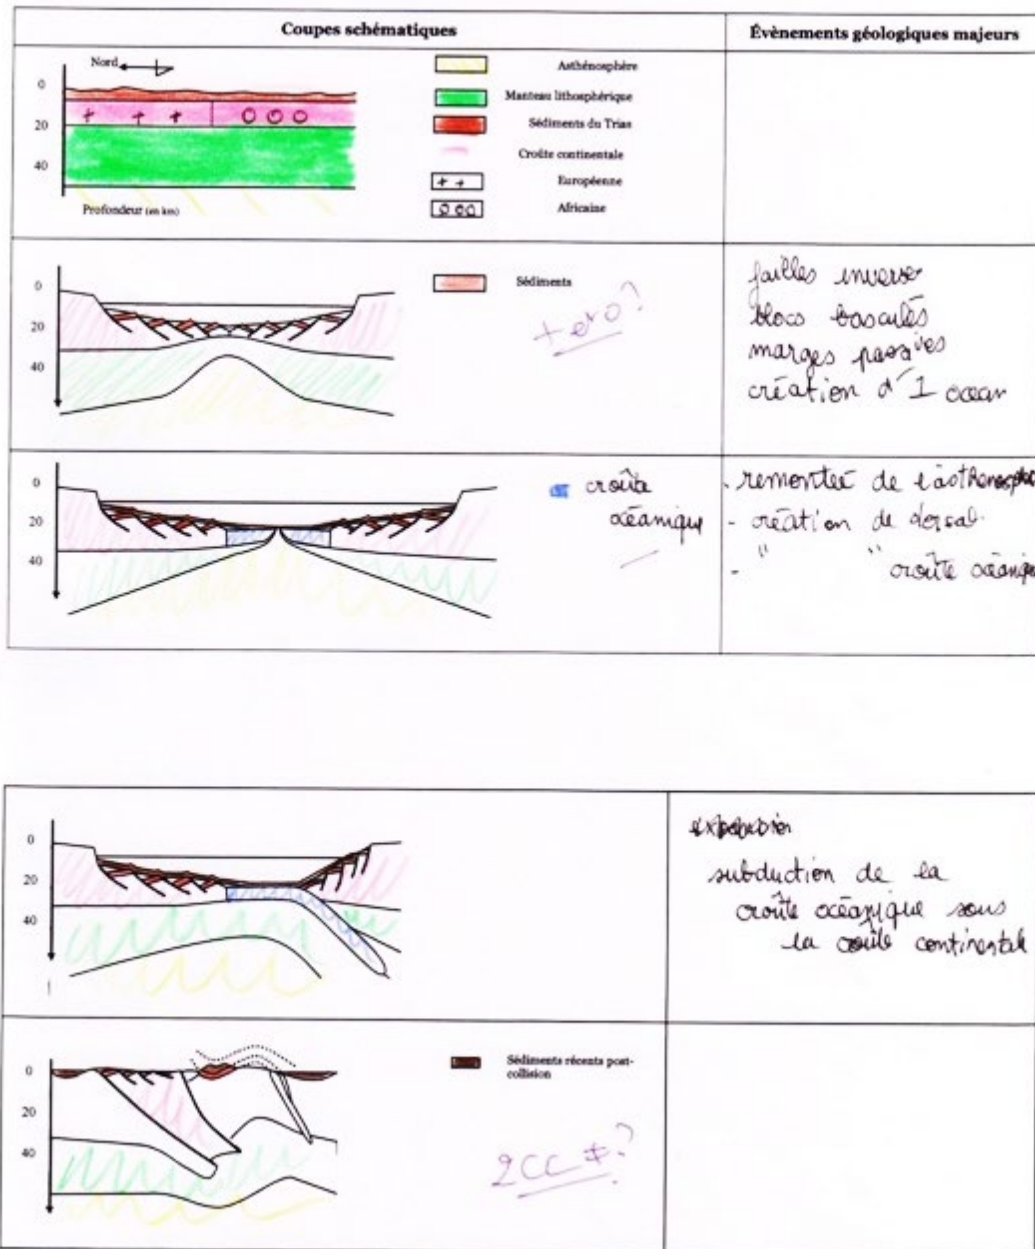 Coupes schématiques
Évènements géologiques majeurs
Nord
0
20
40
Profondeur (en km)
Asthénosphère
Manteau lithosphérique
Sédiments du Trias
Croûte continentale
+ +
Européenne
O O O
Africaine
+ + +
O O O
0
20
40
Sédiments
+ et O ?
failles inverse
blocs basculés
marges passives
création d'1 ocean
0
20
40
croûte
océanique
- remontée de l'asthenosphe
- création de dorsal
- " " croûte océanique
0
20
40
subduction de la
croûte océanique sous
la croûte continentale
0
20
40
Sédiments récents post-
collision
2CC ≠ ?